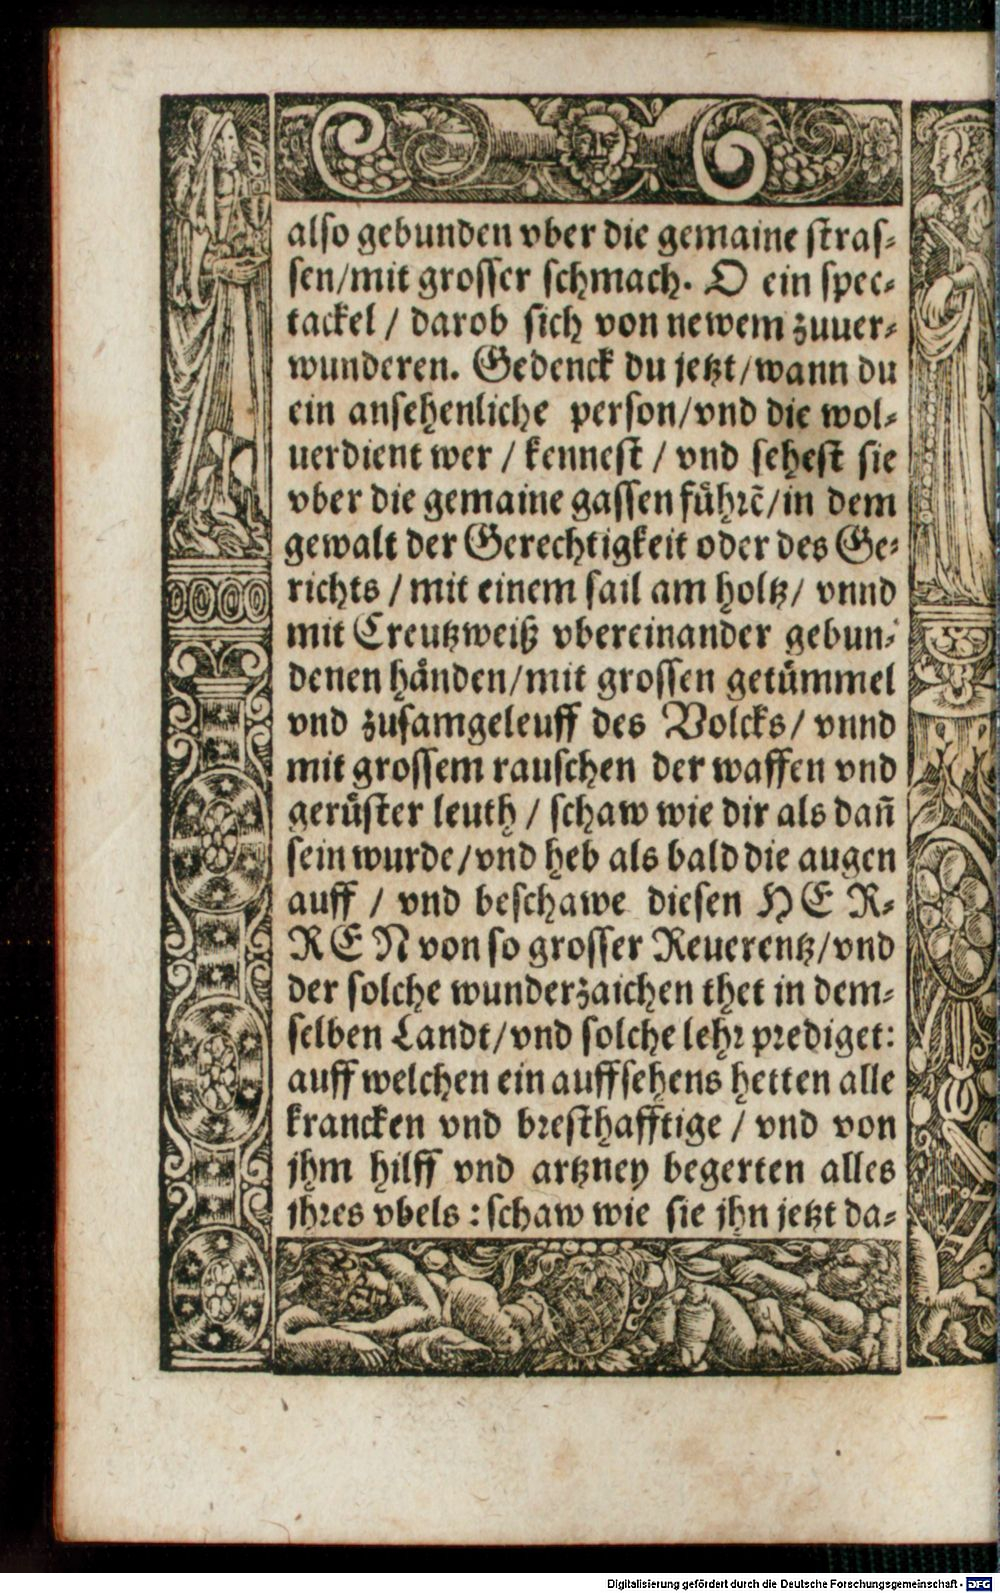 also gebunden vber die gemaine stras⸗
sen/mit grosser schmach. O ein spec⸗
tackel / darob sich von newem zuuer⸗
wunderen. Gedenck du jetzt/wann du
ein ansehenliche person/vnd die wol⸗
uerdient wer / kennest / vnd sehest sie
vber die gemaine gassen fuͤhrẽ/in dem
gewalt der Gerechtigkeit oder des Ge⸗
richts / mit einem sail am holtz/ vnnd
mit Creutzweiß vbereinander gebun⸗
denen haͤnden/mit grossen getuͤmmel
vnd zusamgeleuff des Volcks/ vnnd
mit grossem rauschen der waffen vnd
geruͤster leuth / schaw wie dir als dañ
sein wurde/vnd heb als bald die augen
auff / vnd beschawe diesen HER⸗
REN von so grosser Reuerentz/vnd
der solche wunderzaichen thet in dem⸗
selben Landt/vnd solche lehr prediget:
auff welchen ein auffsehens hetten alle
krancken vnd bresthafftige / vnd von
jhm hilff vnd artzney begerten alles
jhres vbels : schaw wie sie jhn jetzt da⸗
Digitalisierung gefördert durch die Deutsche Forschungsgemeinschaft - DFG